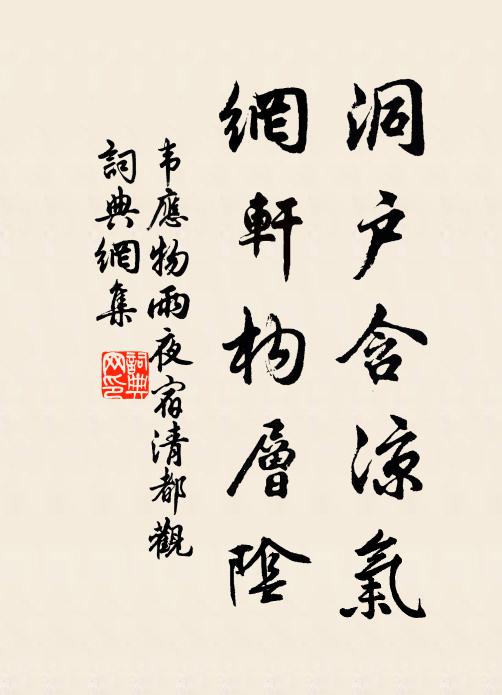 洞户含凉氣
網軒构層陰
韦應物雨夜宿清都觀
詞典網集
詞典
网印